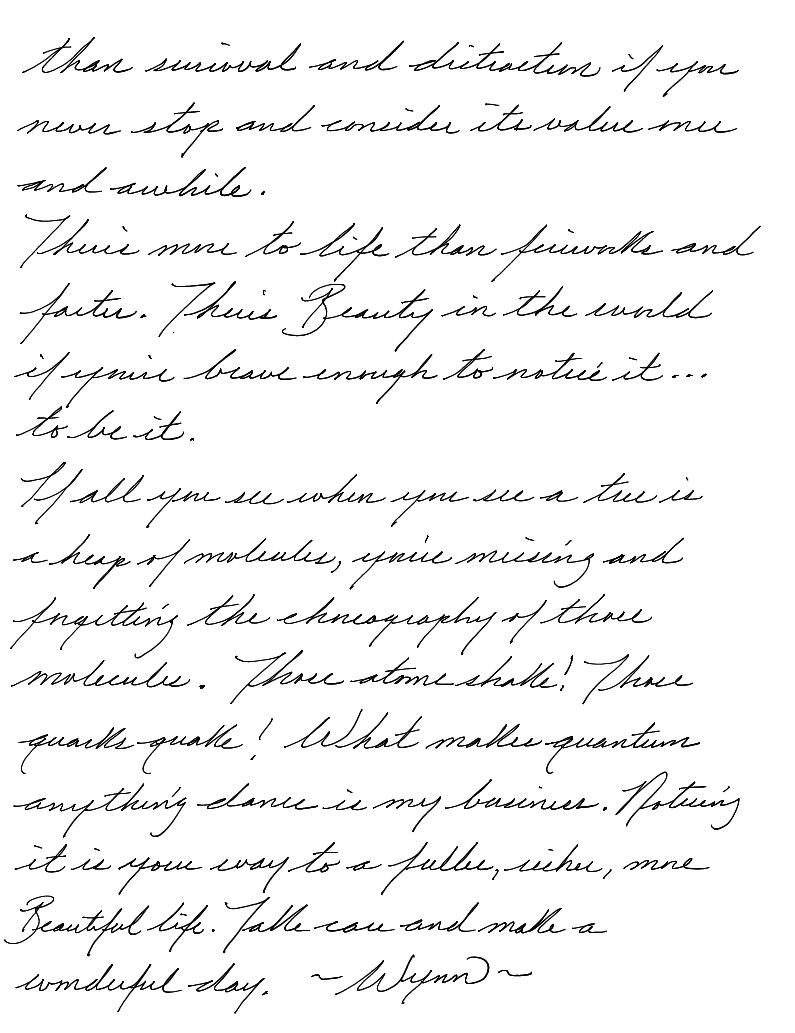 than survival and distraction if you
never stop and consider its value once
and awhile.
There's more to life than fireworks and
faster. There's Beauty in the world
if you're brave enough to notice it...
to be it.
If all you see when you see a tree is
a heap of molecules, you're missing and
forgetting the choreography of those
molecules. Those atoms shake! Those
quarks quake! What makes quantum
anything dance is my business. Noticing
it is your way to a fuller, richer, more
Beautiful life. Take care and make a
wonderful day. ~Wynn~